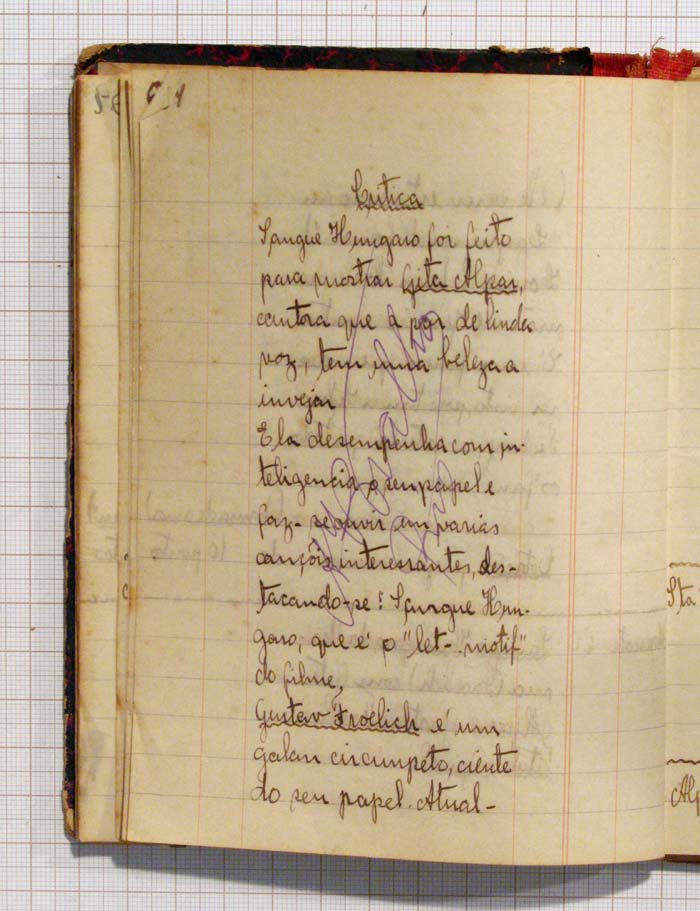 Critica
Sangue Hungaro foi feito
para mostrar Gita Alpar,
cantora que a par de linda
voz, tem uma beleza a
invejar
Ela desempenha com in-
teligencia o seu papel e
faz-se ouvir em varias
canções interessantes, des-
tacando-se: Sangue Hun-
garo, que é o "let-motif"
do filme,
Gustav Froelich é um
galan circunpeto, ciente
do seu papel. Atual-
Sta
Alp